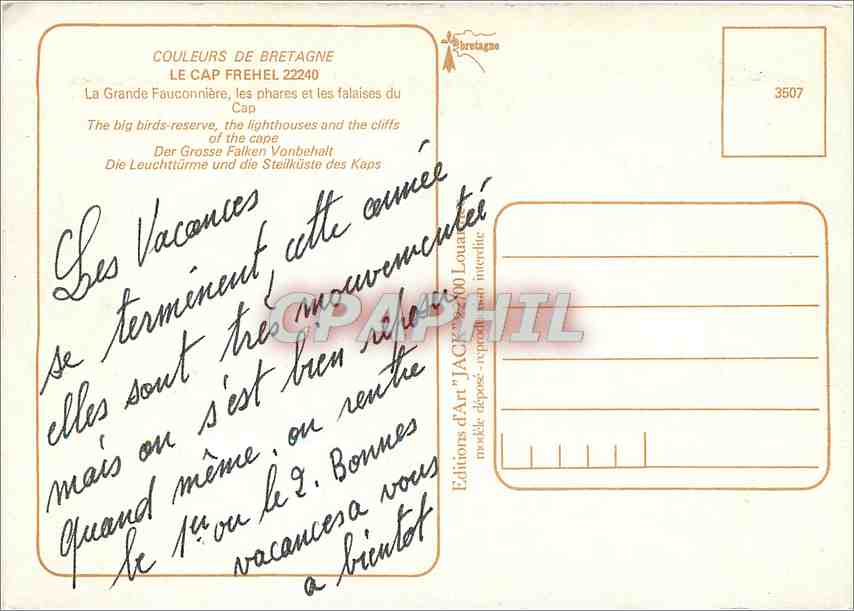 COULEURS DE BRETAGNE
LE CAP FREHEL 22240
La Grande Fauconnière, les phares et les falaises du
Cap
The big birds-reserve, the lighthouses and the cliffs
of the cape
Der Grosse Falken Vonbehalt
Die Leuchttürme und die Steilküste des Kaps
Les Vacances
se terminent, cette année
elles sont très mouvementéé
mais on s'est bien reposé
quand même, on rentre
le 1er ou le 2. Bonnes
vacances a vous
a bientot
Editions d'Art "JACK"
modèle déposé - reproduction interdite
bretagne
3507
CPAPHIL